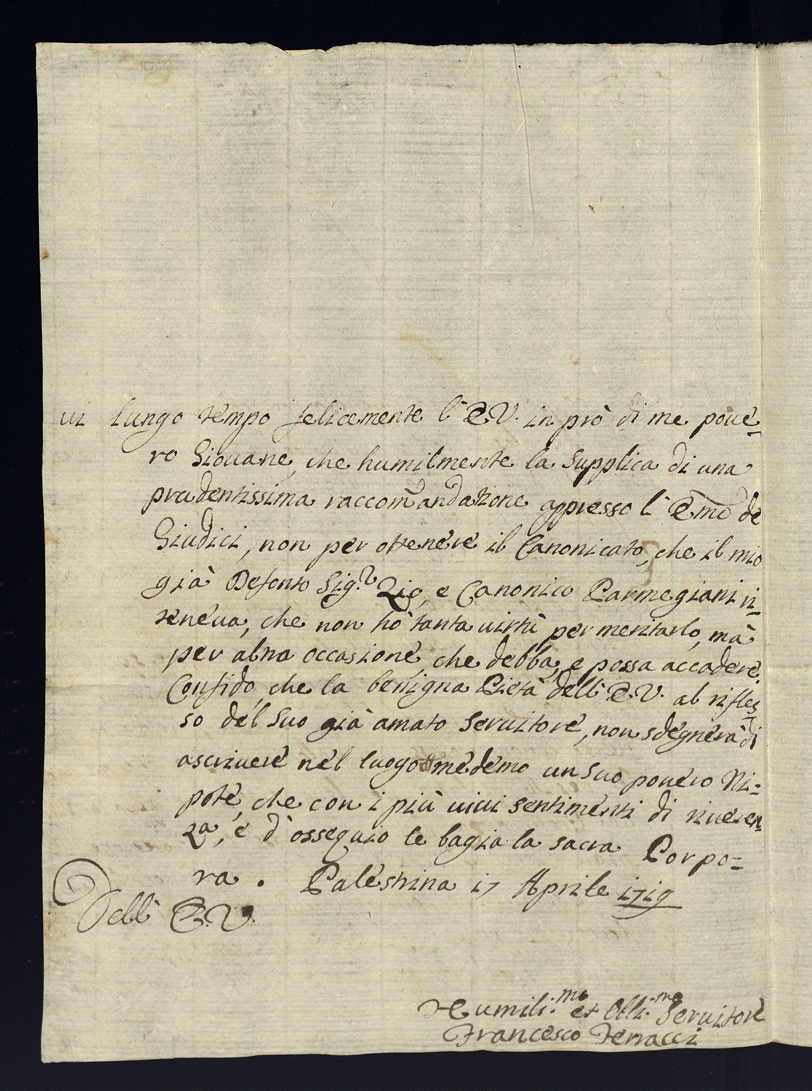 ui lungo tempo felicemente l'E.V. in prò di me poue=
ro Giouane, che humilmente la supplica di una
prudentissima raccom'andatione appresso l'Emo de
Giudici, non per ottenere il Canonicato, che il mio
già Defonto Sig.r Zio, e Canonico Parmegiani ri=
teneua, che non hò tanta uirtù per meritarlo, mà
per altra occasione, che debba, e possa accadere.
Confido, che la benigna Pietà dell'E.V. al rifles=
so del suo già amato seruitore, non sdegnerà di
ascriuere nel luogo medemo un suo pouero Ni=
pote, che con i più uiui sentimenti di riueren=
za, e d'ossequio le bagia la sacra Porpo=
ra. Palestrina 17 Aprile 1719
Dell'E.V.
Humili.mo et Obli.mo Seruitore
Francesco Ferracci